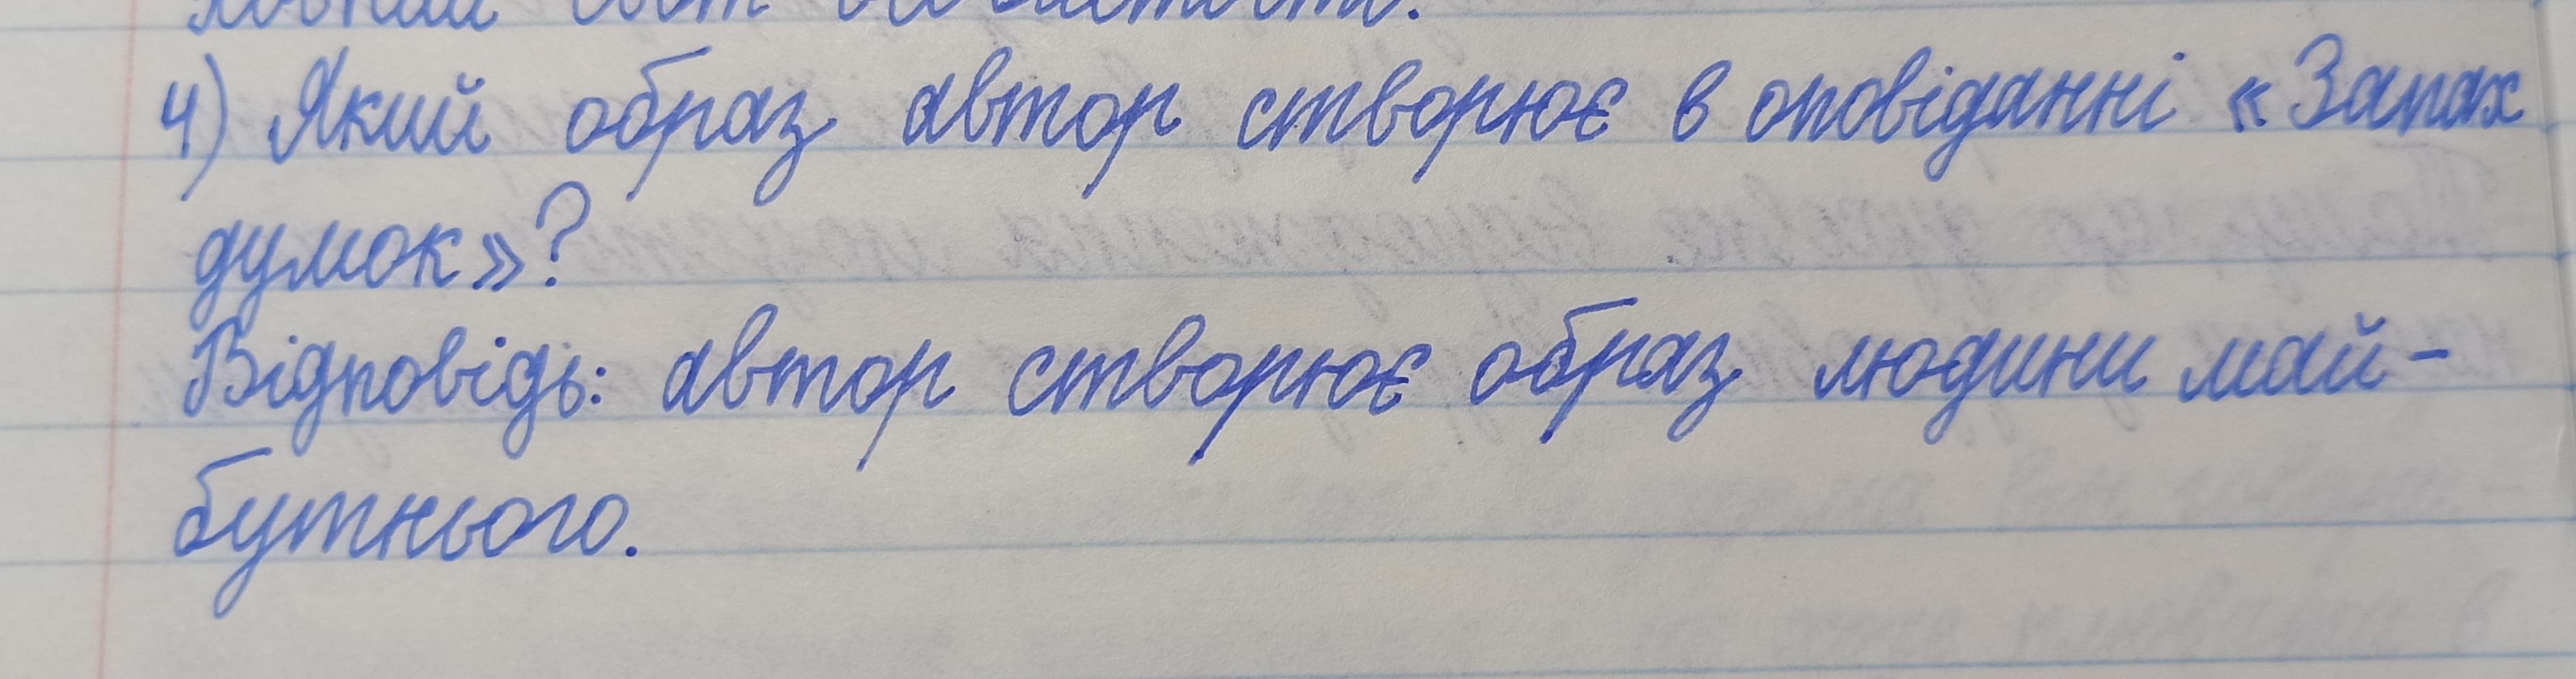 4) Який образ автор створює в оповіданні «Запах
думок»?
Відповідь: автор створює образ людини май-
бутнього.